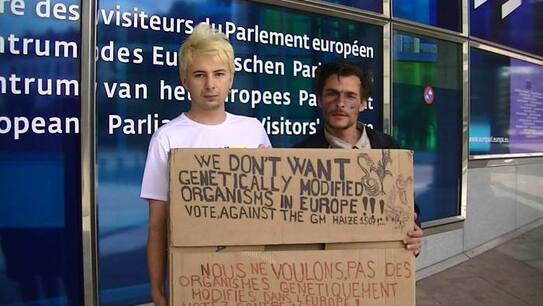 re des visiteurs du Parlement européen
entrum des Europäischen Parl
ntrum van het Europees Parle
opean Parliament Visitors'
europarl.europa.eu
WE DON'T WANT
GENETICALLY MODIFIED
ORGANISMS IN EUROPE!!!
VOTE AGAINST THE GM MAIZE 1507!...
NOUS NE VOULONS, PAS DES
ORGANISMES GENETIQUEMENT
MODIFIES DANS L'EUROPE!